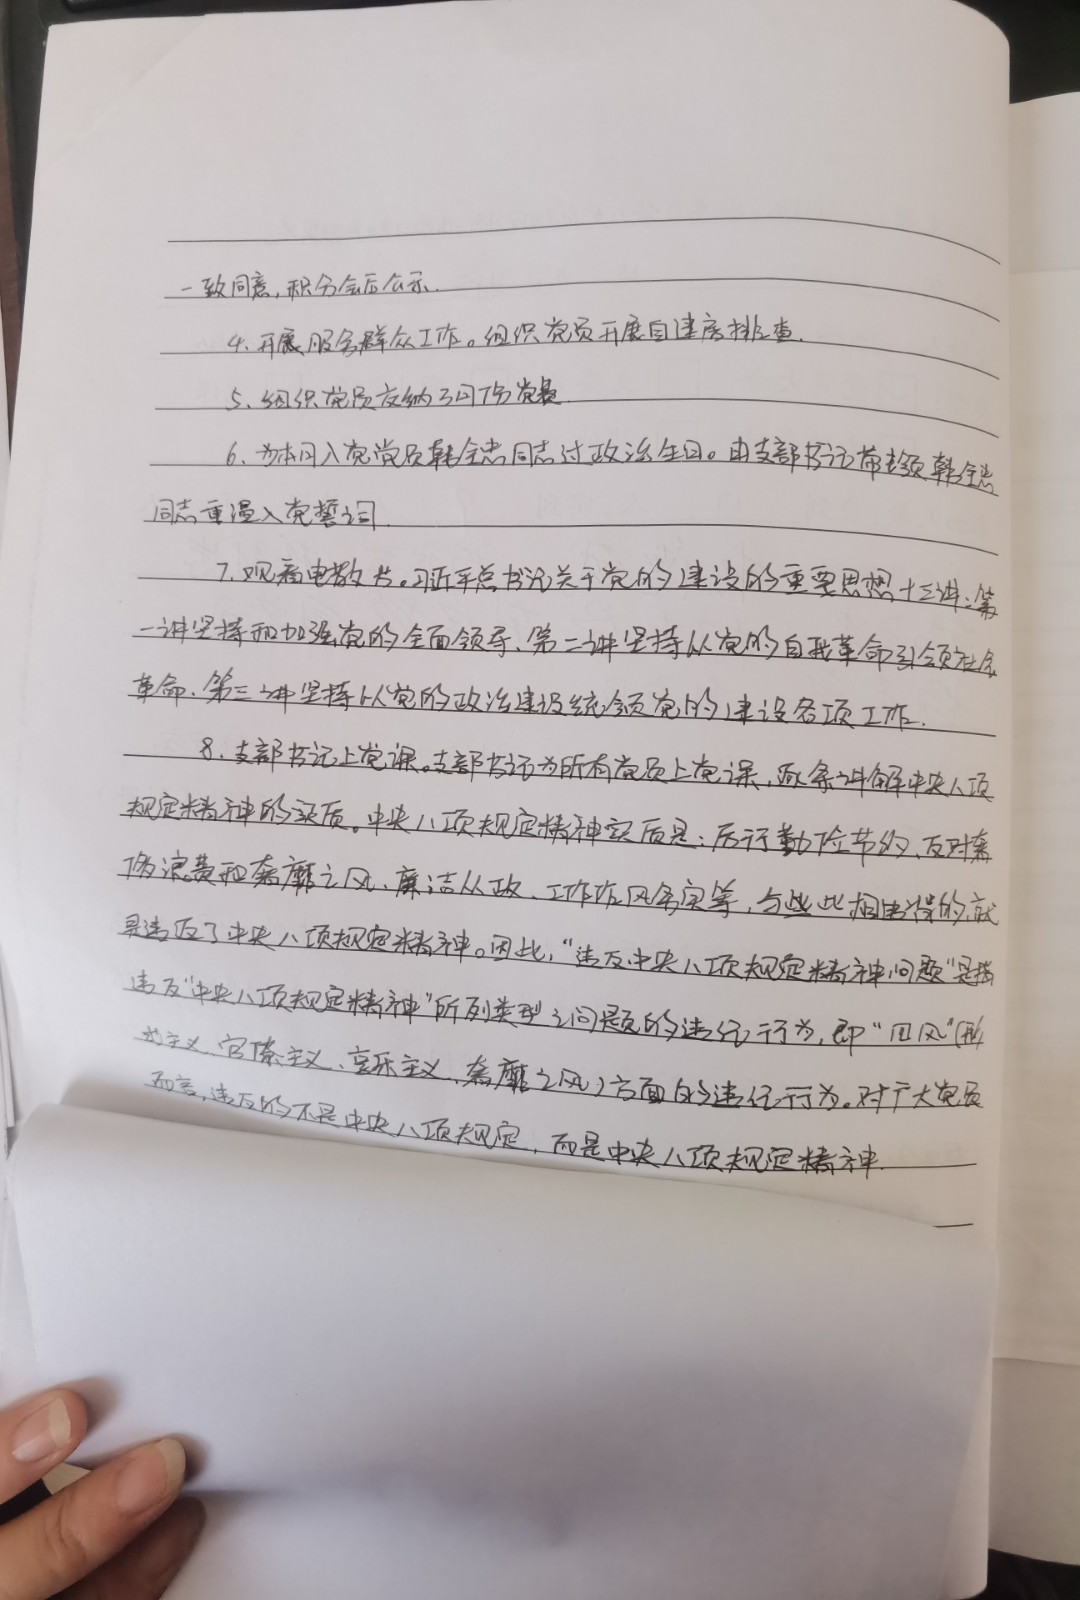 一致同意,积分会后公示.
4、开展服务群众工作。组织党员开展自建房排查.
5、组织党员交纳3月份党费
6、为本月入党党员韩全忠同志过政治生日。由支部书记带领韩全忠
同志重温入党誓词.
7、观看电教片。习近平总书记关于党的建设的重要思想十三讲:第
一讲坚持和加强党的全面领导、第二讲坚持以党的自我革命引领社会
革命、第三讲坚持以党的政治建设统领党的建设各项工作.
8、支部书记上党课。支部书记为所有党员上党课,逐条讲解中央八项
规定精神的实质。中央八项规定精神实质是:厉行勤俭节约、反对奢
侈浪费和奢靡之风、廉洁从政、工作作风务实等,与此相违背的,就
是违反了中央八项规定精神。因此,“违反中央八项规定精神问题”是指
违反“中央八项规定精神”所列类型之问题的违纪行为,即“四风”(形
式主义、官僚主义、享乐主义、奢靡之风)方面的违纪行为。对广大党员
而言,违反的不是中央八项规定,而是中央八项规定精神.